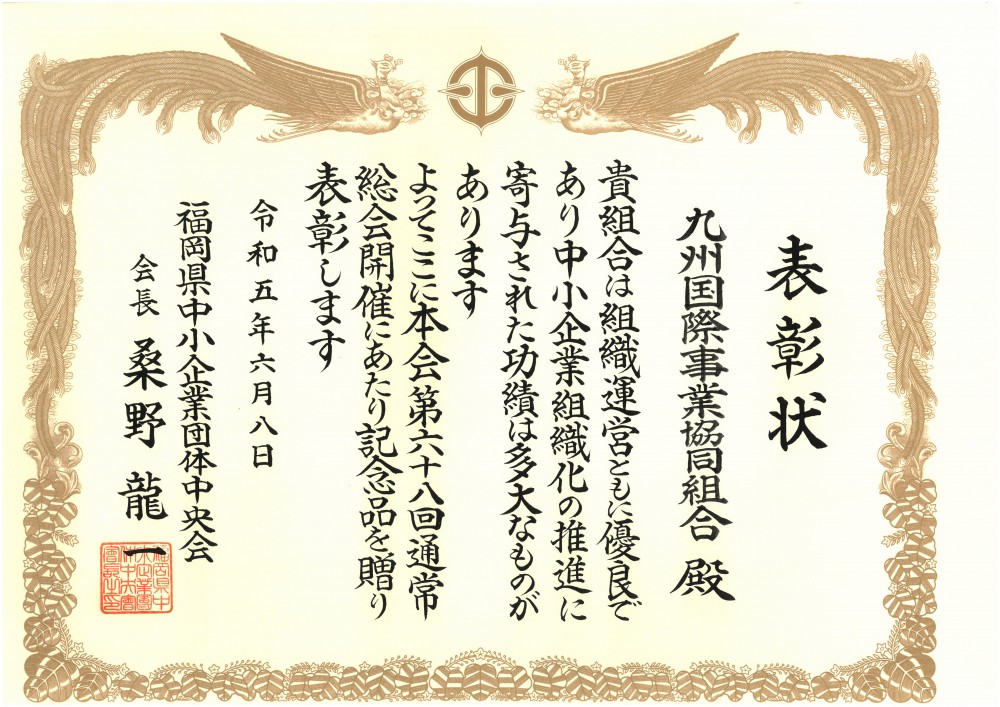 表彰状
九州国際事業協同組合 殿
貴組合は組織運営ともに優良で
あり中小企業組織化の推進に
寄与された功績は多大なものが
あります
よってここに本会第六十八回通常
総会開催にあたり記念品を贈り
表彰します
令和五年六月八日
福岡県中小企業団体中央会
会長 桑野龍一